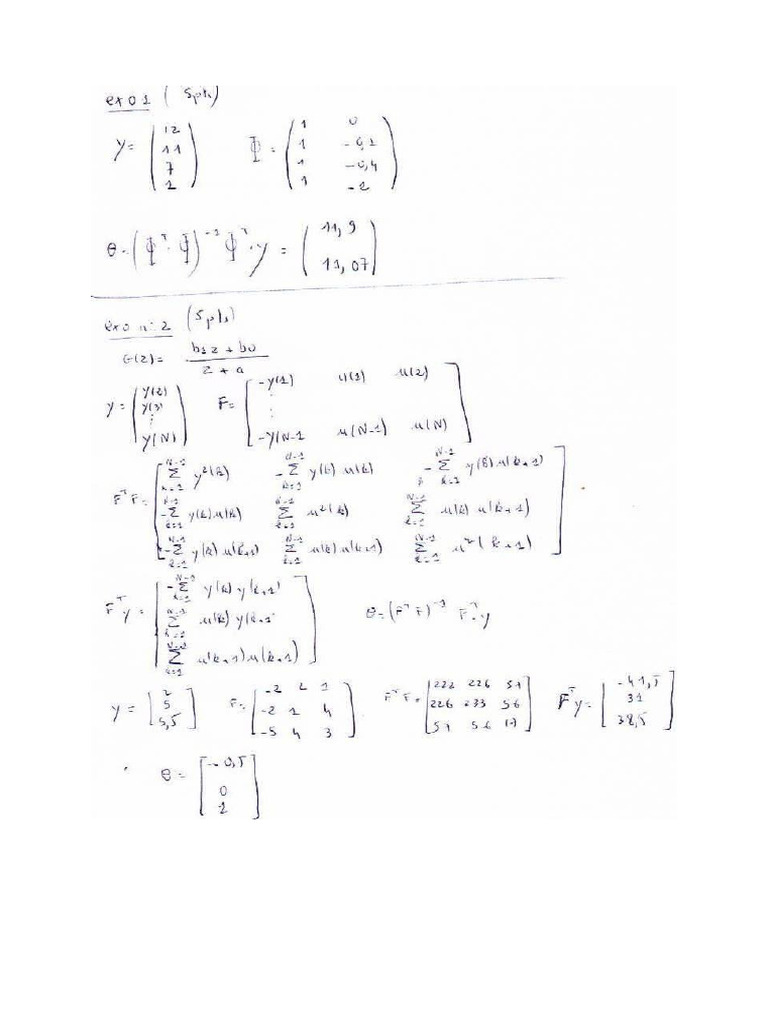 exo 1 (5pts)
y = (12 11 7 1) Φ = (1 0 ; 1 -0,1 ; 1 -0,4 ; 1 -1)
θ = (Φ^T · Φ)^-1 Φ^T · y = (11,9 ; 11,07)
exo n° 2 (5pts)
G(z) = (b1 z + b0) / (z + a)
y = (y(2) y(3) ⋮ y(N)) F = [-y(1) u(1) u(2) ; ⋮ ; -y(N-1 u(N-1) u(N)]
F^T F = [∑_{k=1}^{N-1} y²(k) -∑_{k=1}^{N-1} y(k) u(k) -∑_{k=1}^{N-1} y(k) u(k+1) ;
-∑_{k=1}^{N-1} y(k) u(k) ∑_{k=1}^{N-1} u²(k) ∑_{k=1}^{N-1} u(k) u(k+1) ;
-∑_{k=1}^{N-1} y(k) u(k+1) ∑_{k=1}^{N-1} u(k) u(k+1) ∑_{k=1}^{N-1} u²(k+1)]
F^T y = [-∑_{k=1}^{N-1} y(k) y(k+1) ; ∑_{k=1}^{N-1} u(k) y(k+1 ; ∑_{k=1}^{N-1} u(k+1) u(k+1)] θ = (F^T F)^-1 F^T · y
y = [5 5,5] F = [-2 1 ; -2 4 ; -5 4 3] F^T F = [222 226 ; 226 233 56 ; 56] F^T y = [-41,5 ; 31 ; 38,5]
θ = [-0,5 ; 0 ; 1]